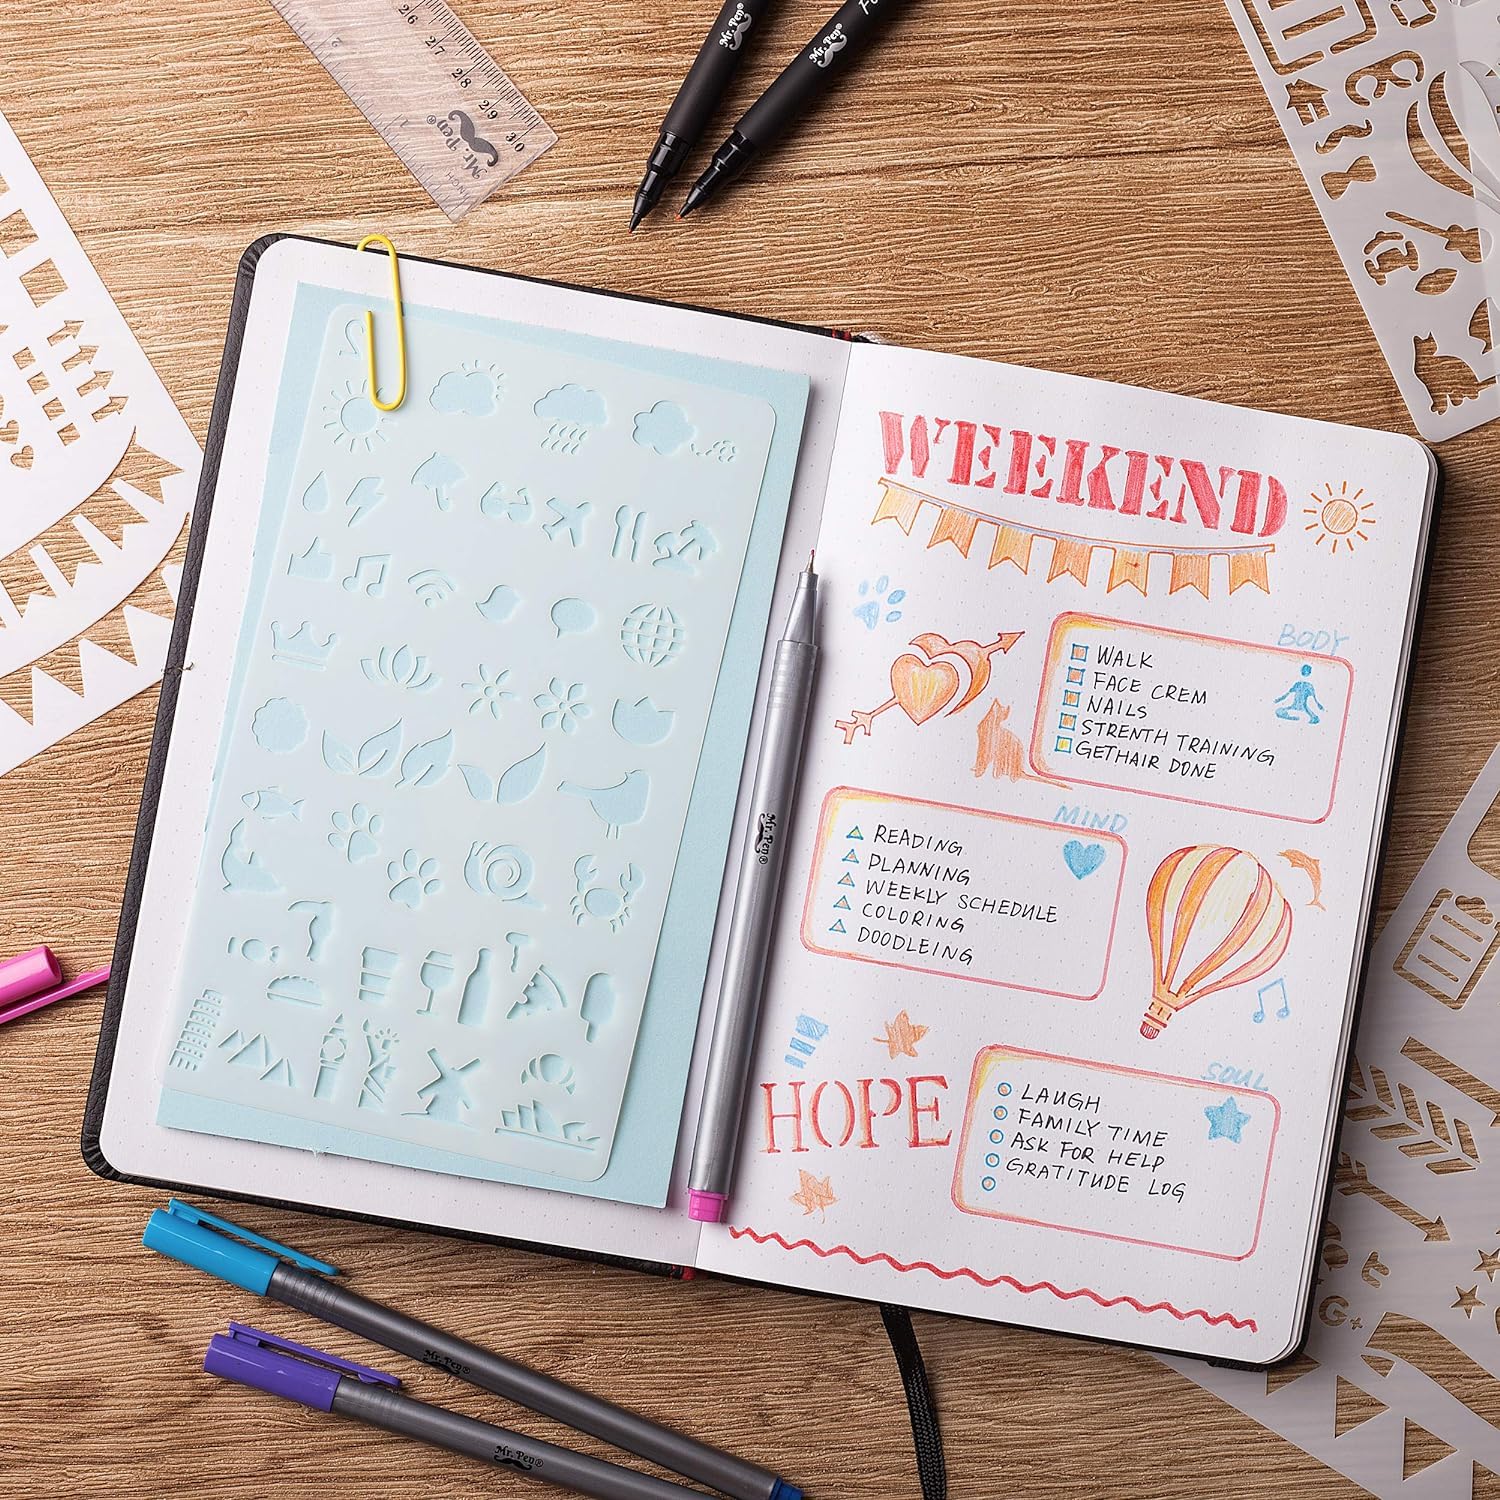 26 27 28 29 30
Mr. Pen®
Mr. Pen®
Mr. Pen®
WEEKEND
BODY
WALK
FACE CREM
NAILS
STRENTH TRAINING
GETHAIR DONE
MIND
READING
PLANNING
WEEKLY SCHEDULE
COLORING
DOODLEING
Mr. Pen®
HOPE
SOUL
LAUGH
FAMILY TIME
ASK FOR HELP
GRATITUDE LOG
Mr. Pen®
Mr. Pen®